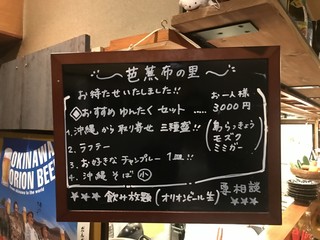 ～芭蕉布の里～
お待たせいたしました!!
おすすめ ゆんたく セット ..... お一人様 3,000円
1. 沖縄から取り寄せ 三種盛!! (島らっきょう モズク ミミガー)
2. ラフテー
3. お好きなチャンプルー 1皿!!
4. 沖縄そば 小
★★★ 飲み放題 (オリオンビール生) 要相談 ★★★
OKINAWA
ORION BEE